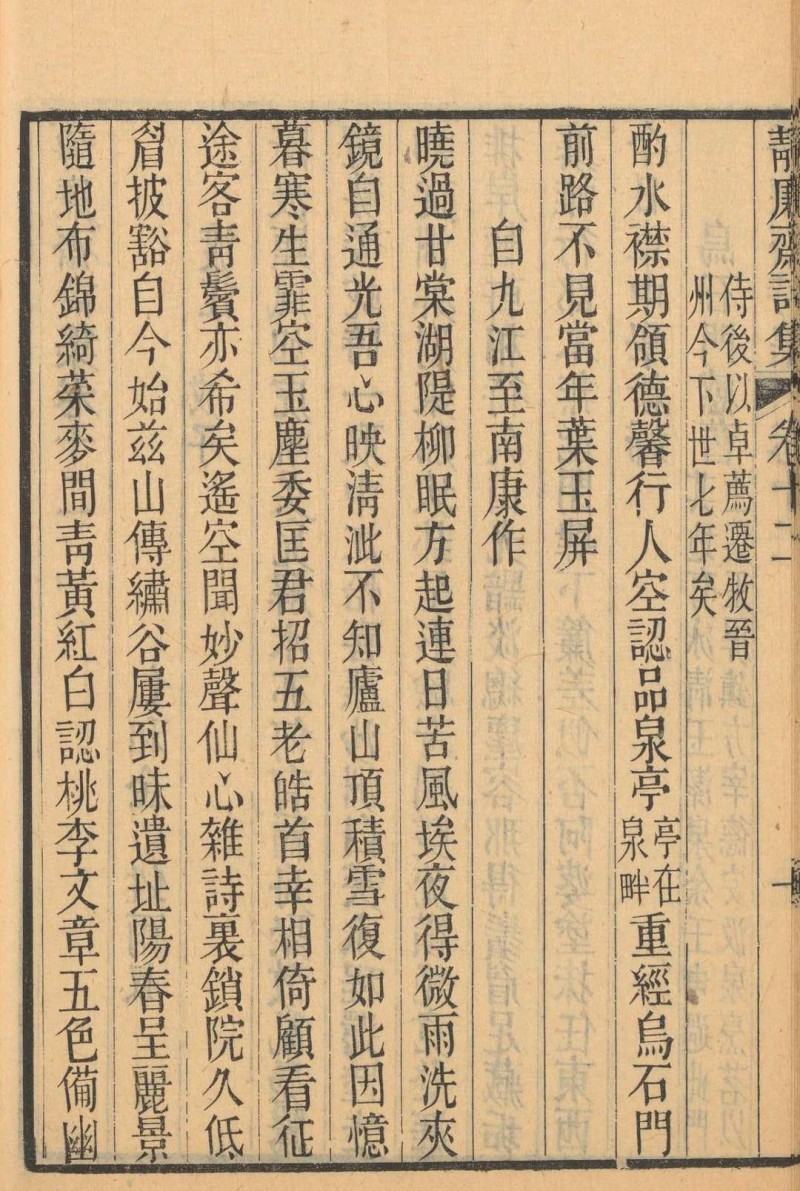 靜廉齋詩集 卷十二
侍後以卓薦遷牧晉
州今下世七年矣
酌水襟期領德馨行人空認品泉亭亭在泉畔重經烏石門
前路不見當年葉玉屏
自九江至南康作
曉過甘棠湖隄柳眠方起連日苦風埃夜得微雨洗夾
鏡自通光吾心映淸泚不知廬山頂積雪復如此因憶
暮寒生霏空玉塵委匡君招五老皓首幸相倚顧看征
途客靑鬢亦希矣遙空聞妙聲仙心雜詩裏鎖院久低
眉披豁自今始兹山傳繡谷屢到昧遺址陽春呈麗景
隨地布錦綺菜麥間靑黃紅白認桃李文章五色備幽